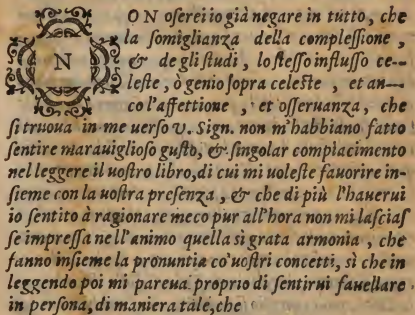 NON oserei io già negare in tutto, che
la somiglianza della complessione,
& de gli studi, lo stesso influsso ce-
leste, ò genio sopra celeste, et an-
co l'affettione, et osseruanza, che
si truoua in me uerso V. Sign. non m'habbiano fatto
sentire marauiglioso gusto, & singolar compiacimento
nel leggere il uostro libro, di cui mi uoleste fauorire in-
sieme con la uostra presenza, & che di più l'hauerui
io sentito à ragionare meco pur all'hora non mi lasciaf
se impressa nell'animo quella sì grata armonia, che
fanno insieme la pronuntia co'uostri concetti, sì che in
leggendo poi mi pareua proprio di sentirui fauellare
in persona, di maniera tale, che